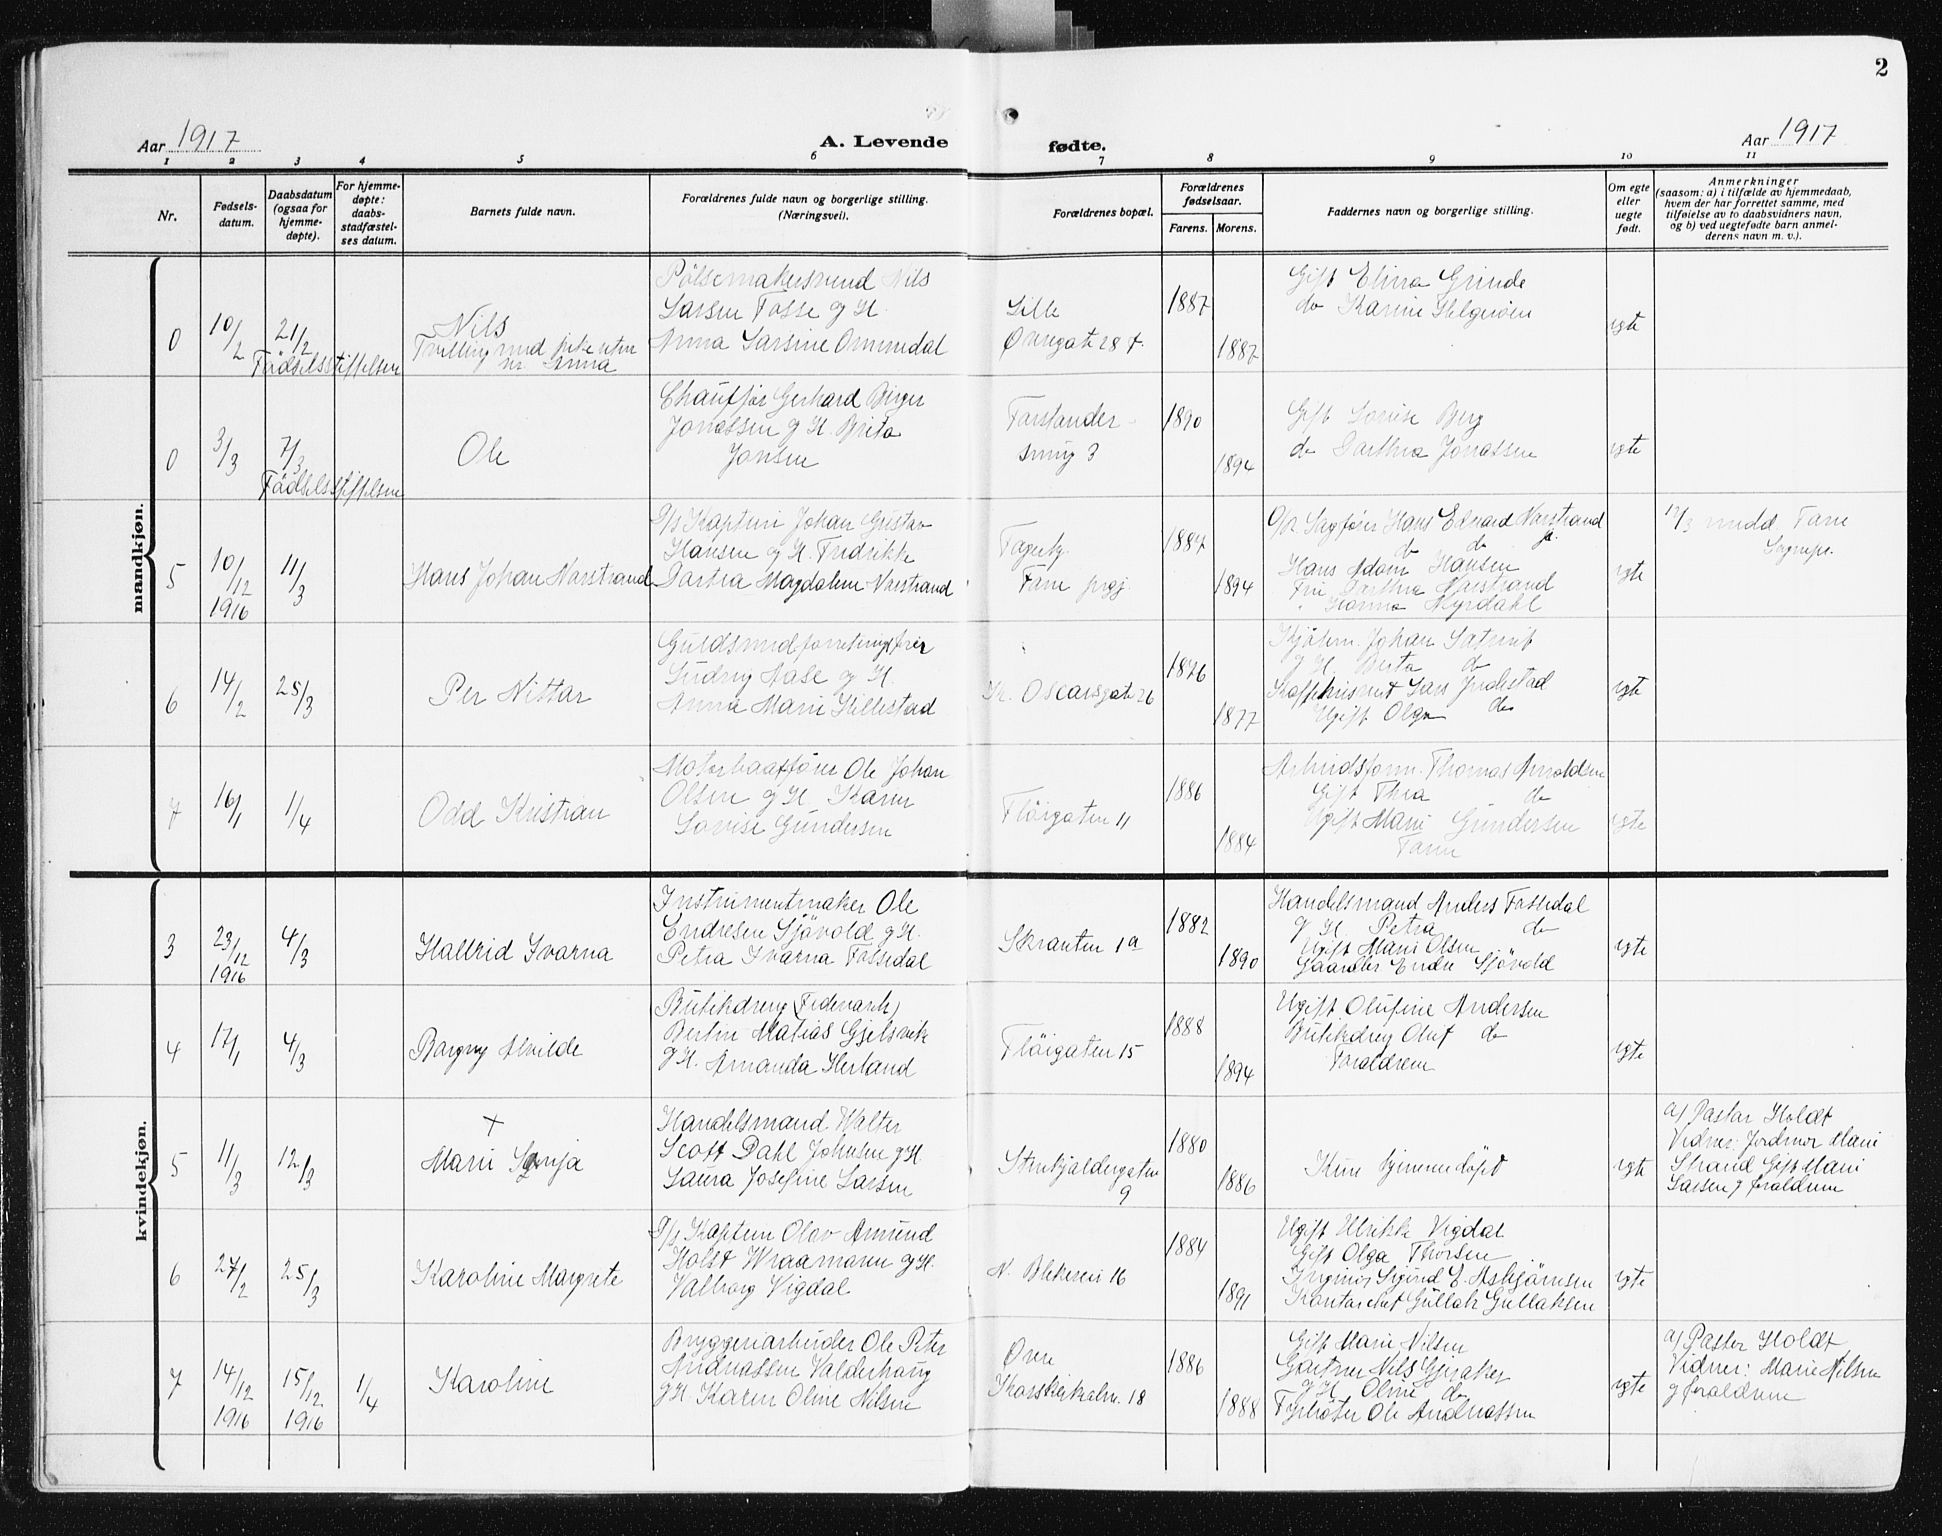 2
Aar 1917
A. Levende
fødte.
Aar 1917
1 2 3 4 5 6 7 8 9 10 11
Nr.
Fødsels-
datum.
Daabsdatum
(ogsaa for
hjemme-
døpte).
For hjemme-
døpte:
daabs-
stadfæstel-
ses datum.
Barnets fulde navn.
Forældrenes fulde navn og borgerlige stilling.
(Næringsvei).
Forældrenes bopæl.
Forældrenes
fødselsaar.
Farens. Morens.
Faddernes navn og borgerlige stilling.
Om egte
eller
uegte
født.
Anmerkninger
(saasom: a) i tilfælde av hjemmedaab,
hvem der har forrettet samme, med
tilføielse av to daabsvidners navn,
og b) ved uegtefødte barn anmel-
derens navn m. v.).
mandkjøn.
0
10/2
21/2
Födselsstiftelsen
Nils
Tvilling med
nr Anna
Pölsemakersvend Nils
Larsen Fosse g H.
Anna Larsine Ommedal
Lille
Øvregate 28
1887
1887
Gift Elina Grinde
do Karine Helgesen
egte
0
3/3
7/3
Födselsstiftelsen
Ole
Chaufför Gerhard Birger
Jonassen g H. Brita
Jansen
Forstander-
smug 3
1890
1894
Gift Lovise Berg
do Dorthea Jonassen
egte
5
10/12
1916
11/3
Hans Johan Narstrand
D/s Kaptein Johan Gustav
Hansen g H. Fredrikke
Dortea Magdalene Narstrand
Fane prgj.
1887
1894
O/r Sagförer Hans Edvard Narstrand
do do jr.
Hans Adam Hansen
Fru Dorthea Narstrand
" Hanna Myrdahl
egte
17/3 medd. Fane
Sognepr.
6
14/2
25/3
Per Nittar
Guldsmedforretningsfører
Ludvig Aase g H.
Anna Marie Hillestad
Kr. Oscarsgate 26
1876
1877
Kjöbm. Johan
g H. Berta do
Lars Indrestad
Ugift Olga do
egte
7
16/1
1/4
Odd Kristian
Motorbaatförer Ole Johan
Olsen g H. Karen
Lovise Gundersen
Flöigaten 11
1886
1884
Arbeidsform. Thomas Arnoldsen
Gift Thea do
Ugift Marie Gundersen
Faren
egte
kvindekjøn.
3
23/12
1916
4/3
Halfrid Ivarna
Instrumentmaker Ole
Endresen Sjövold g H.
Petra Ivarna Fossedal
Skranten 1a
1882
1890
Handelsmand Anders Fossedal
g H. Petra do
Ugift Marie Olsen
Gaardbr Endre Sjövold
egte
4
17/1
4/3
Borgny Alvilde
Butikdreng (Fedevareh)
Bertin Matias Gjelsvik
g H. Amanda Herland
Flöigaten 15
1888
1894
Ugift Olufine Andersen
Butikdreng Oluf do
Foraldrene
egte
5
11/3
12/3
+
Marie Sonja
Handelsmand Walter
Scott Dahl Johnsen g H
Laura Josefine Larsen
Strukjeldergaten
9
1880
1886
Kun hjemmedöpt
egte
af Pastor Holdt
Vidner: Jordmor Marie
Strand Gift Marie
Larsen g foraldrene
6
27/2
25/3
Karoline Margrete
D/s Kaptein Olav Amund
Holst Wraamann g H.
Valborg Vigdal
N. Blekevei 16
1884
1891
Ugift Ulrikke Vigdal
Gift Olga Thorsen
Ingeniör Sigurd E. Asbjörnsen
Kontorchef Gullak Gullaksen
egte
7
14/12
1916
15/12
1916
1/4
Karoline
Bryggeriarbeider Ole Peter
Andreassen Valderhaug
g H. Karen Oline Nilsen
Øvre
Korskirkealm. 18
1886
1888
Gift Marie Nilsen
Gartner Nils Gjeraker
g H. Oline do
Fyrböter Ole Andreassen
egte
af Pastor Holdt
Vidner: Marie Nilsen
g foraldrene